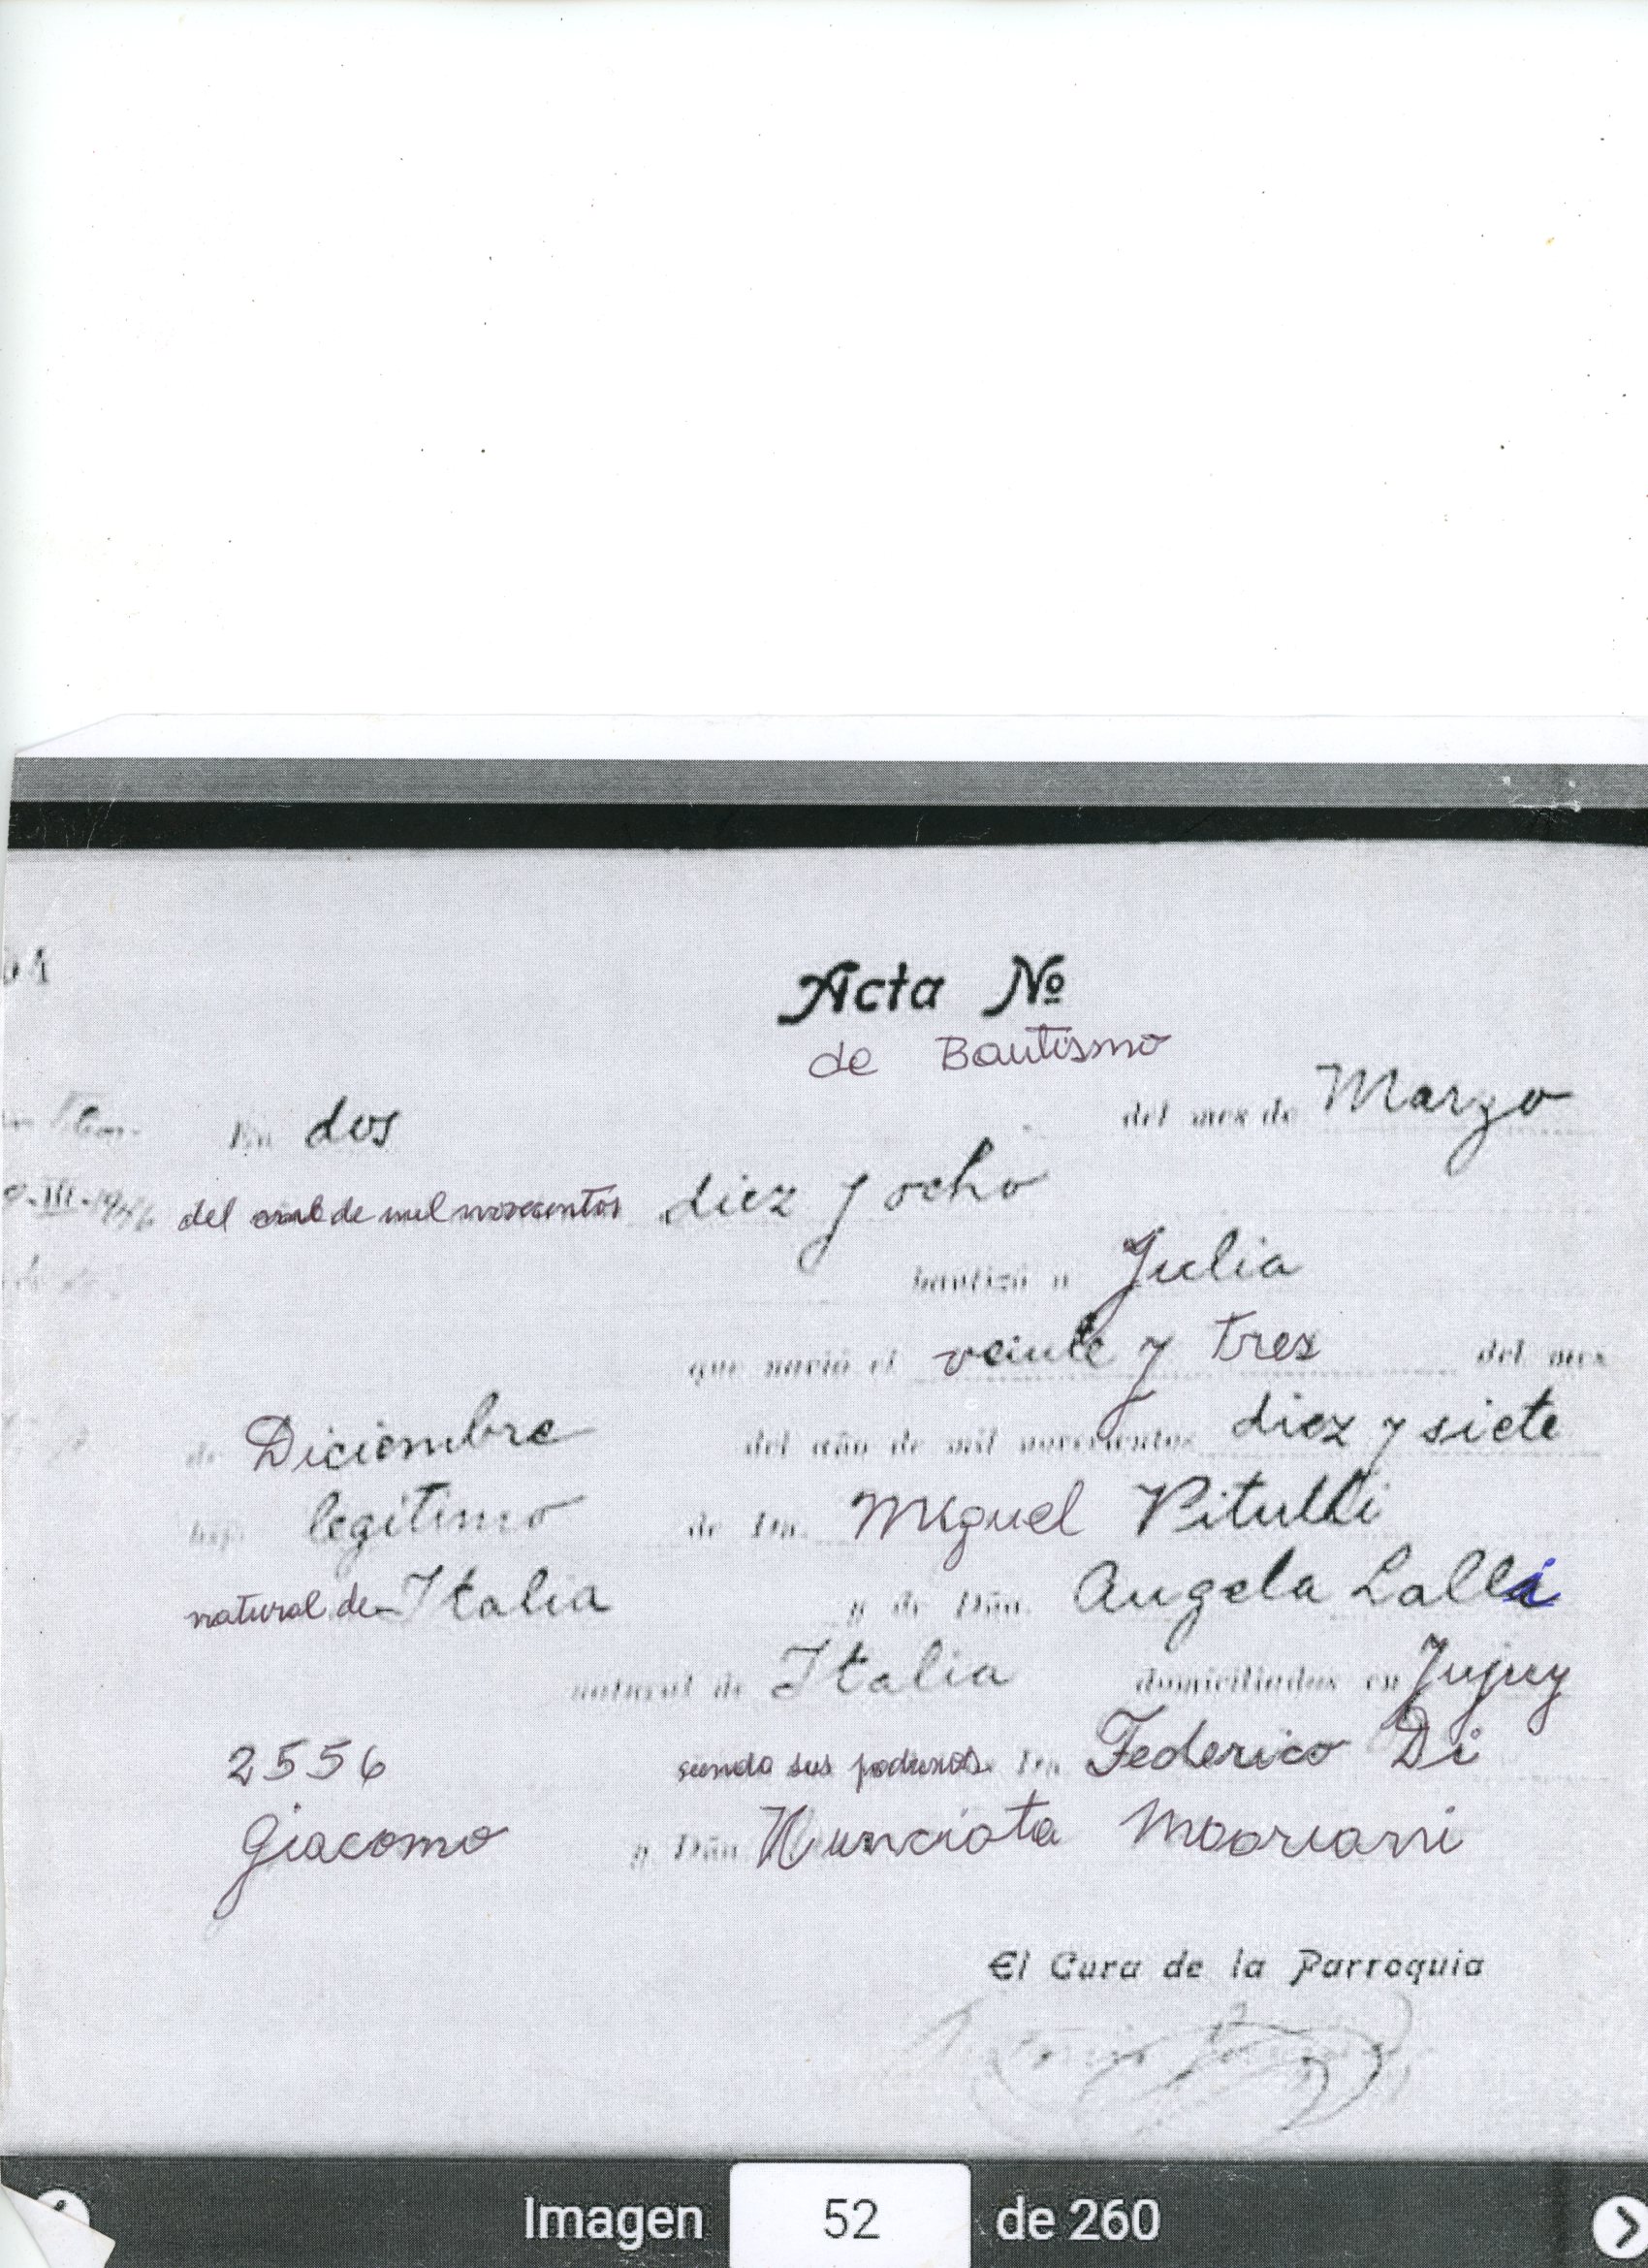 Acta Nº
de Bautismo
En dos del mes de Marzo
III-1946 del de mil novecientos diez y ocho
bautizó a Julia
que nació el veinte y tres del mes
de Diciembre del año de mil novecientos diez y siete
hijo legitimo de Dn. Miguel Pitulli
natural de Italia y de Dña. Angela Lalli
natural de Italia domiciliados en Jujuy
2556 siendo sus padrinos Dn Federico Di
Giacomo y Dña. Nunciata
El Cura de la Parroquia
Imagen 52 de 260